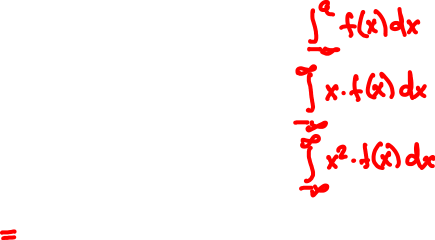 ∫_{-∞}^{a} f(x) dx
∫_{-∞}^{∞} x · f(x) dx
∫_{-∞}^{∞} x² · f(x) dx
=